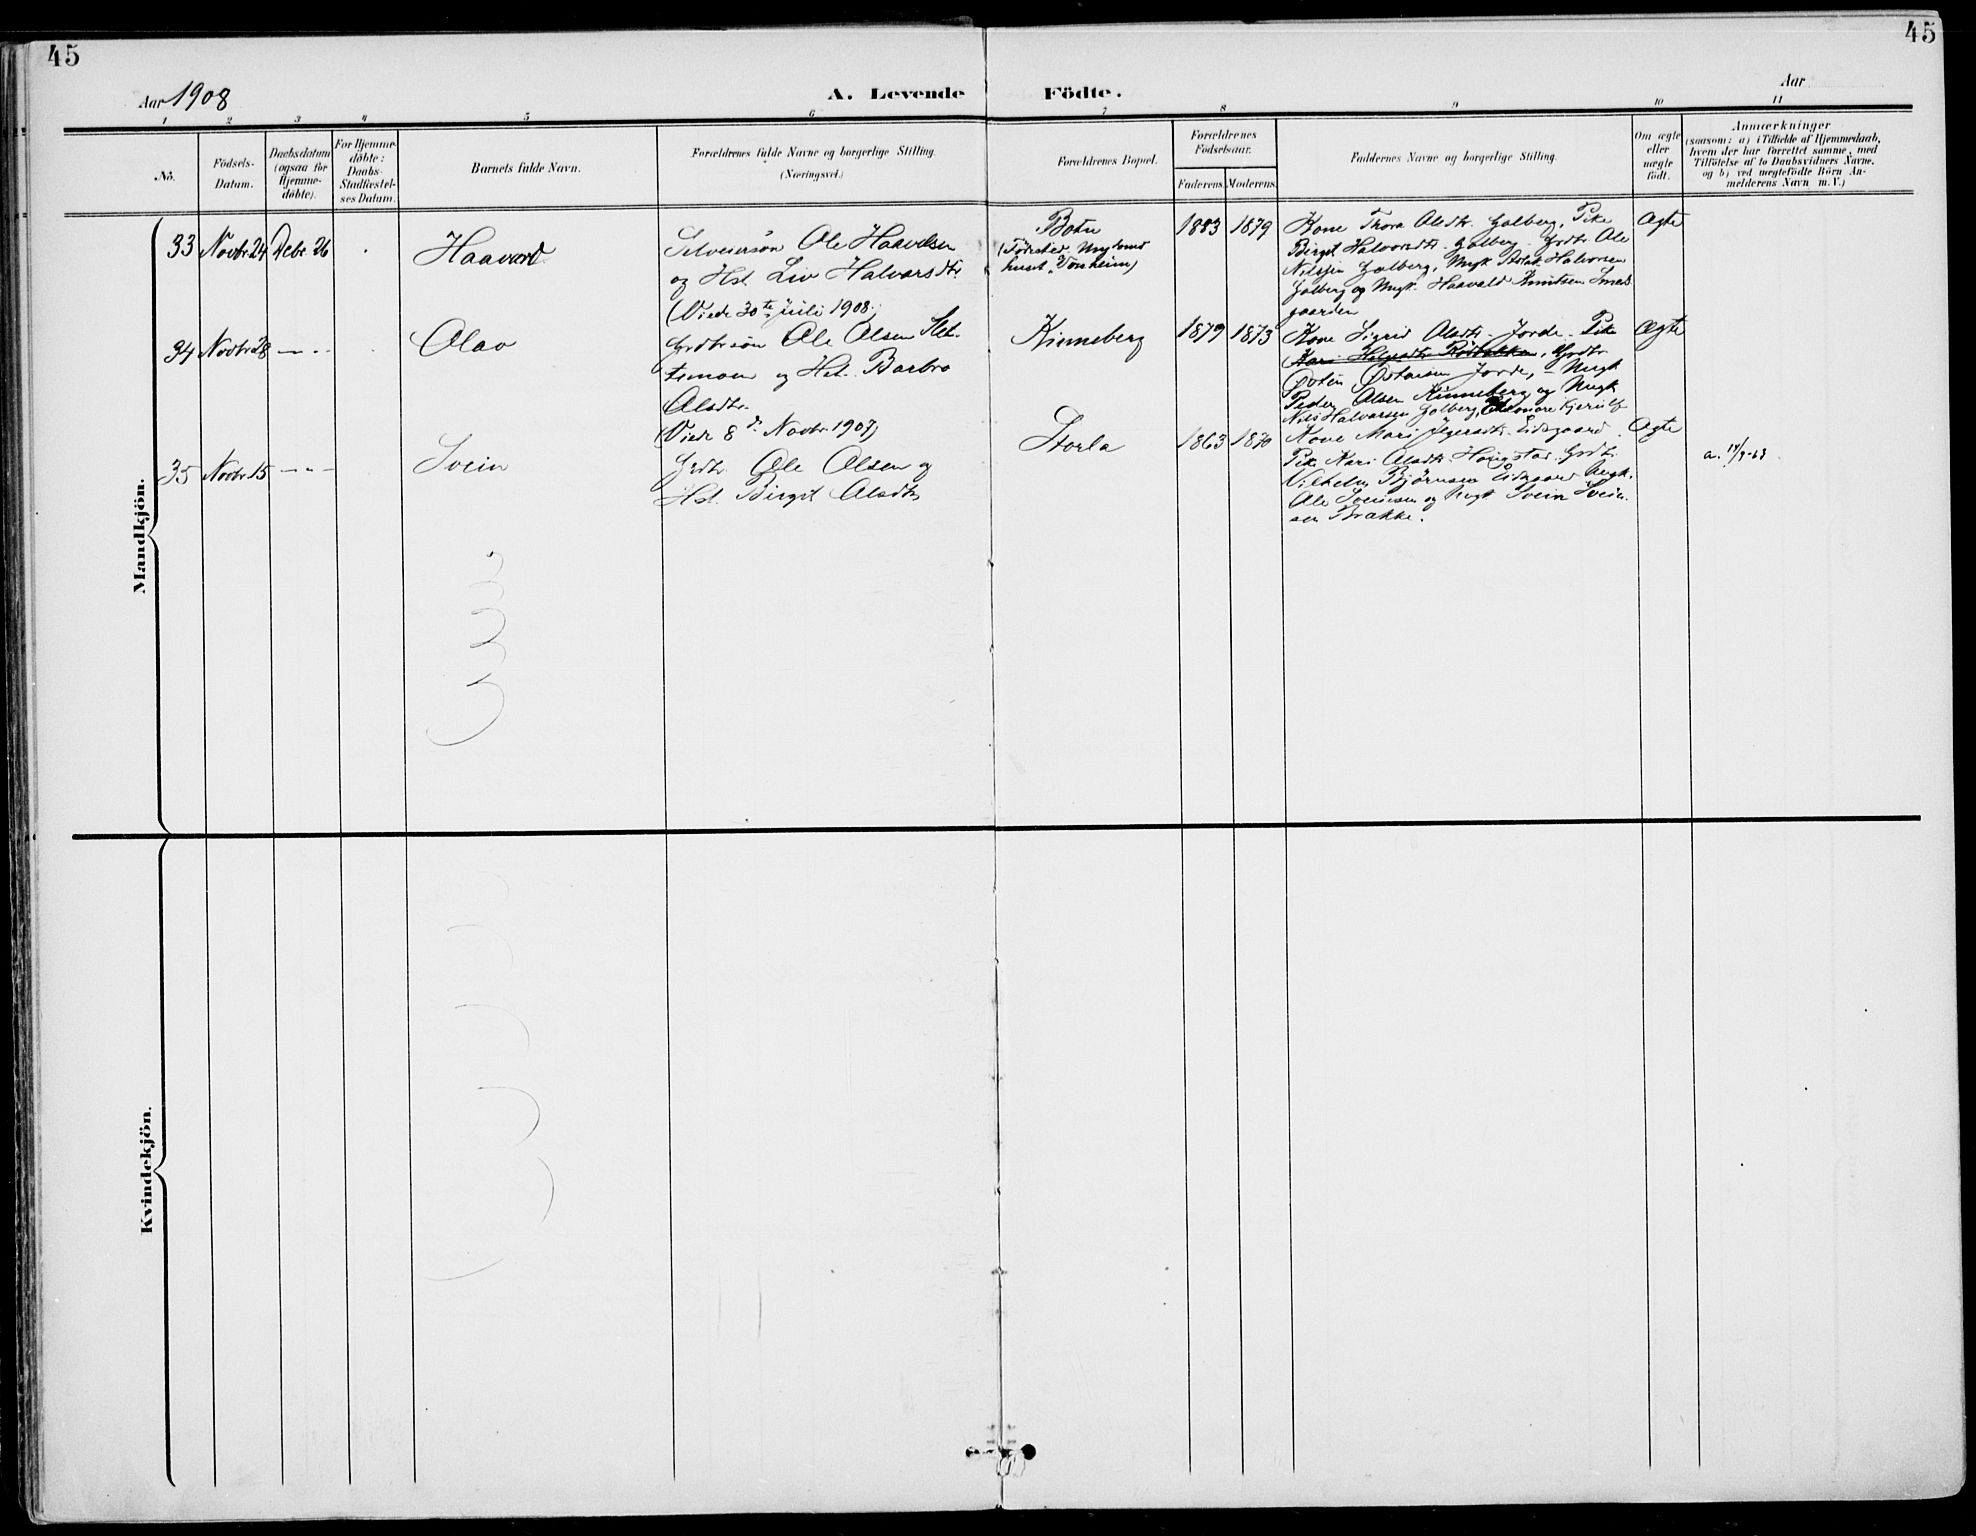 45
45
Aar 1908
A. Levende Födte.
Aar
1 2 3 4 5 6 7 8 9 10 11
No.
Födsels-
Datum.
Daabsdatum
(ogsaa for
Hjemme-
döbte).
For Hjemme-
döbte:
Daabs-
Stadfæstel-
ses Datum.
Barnets fulde Navn.
Forældrenes fulde Navne og borgerlige Stilling.
(Næringsvei.)
Forældrenes Bopæl.
Forældrenes
Födselsaar.
Faderens. Moderens.
Faddernes Navne og borgerlige Stilling.
Om ægte
eller
uægte
födt.
Anmærkninger
(saasom: a) i Tilfælde af Hjemmedaab,
hvem der har forrettet samme, med
Tilföielse af to Daabsvidners Navne.
og b) ved uægtefödte Börn An-
melderens Navn m. V.)
Mandkjön.
33 Novbr 24 Debr 26
Haavard
Selveiersøn Ole Haavelsen
og Hst. Liv Halvarsdtr.
(Viede 30te Juli 1908.
Botn
(Fødested Ungdoms
huset "Vonheim)
1883 1879
Kone Thora Olsdtr. Golberg, Pike
Birgit Halvorsdtr. Golberg. Grdbr. Ole
Nilssen Golberg, Ungk Aslak Halvorsen
Golberg og Ungk. Haavald Knutsen Smed
gaarden
Ægte
34 Novbr 28 — " —
Olav
Grdbrsøn Ole Olsen Slet
temoen og Hst. Barbro
Olsdtr.
(Viede 8de Novbr. 1907)
Kinneberg
1879 1873
Kone Sigrid Olsdtr. Jorde. Pike
Kari, Grdbr
Østen Østensen Jorde, Ungk
Peder Olsen Kinneberg og Ungk
Nils Halvarsen Golberg, Eleonore Kjerulf
Ægte
35 Novbr 15 — " —
Svein
Grdbr. Ole Olsen og
Hst. Birgit Olsdtr
Storla
1863 1870
Kone Mari Sidsgaard.
Pike Kari Olsdtr. Haugstad. Grdbr.
Vilhelm Bjørnsen Eidsgaard Ungk.
Ole Sveinsen og Ungk Svein Svein
sen Brække.
Ægte
a.
Kvindekjön.